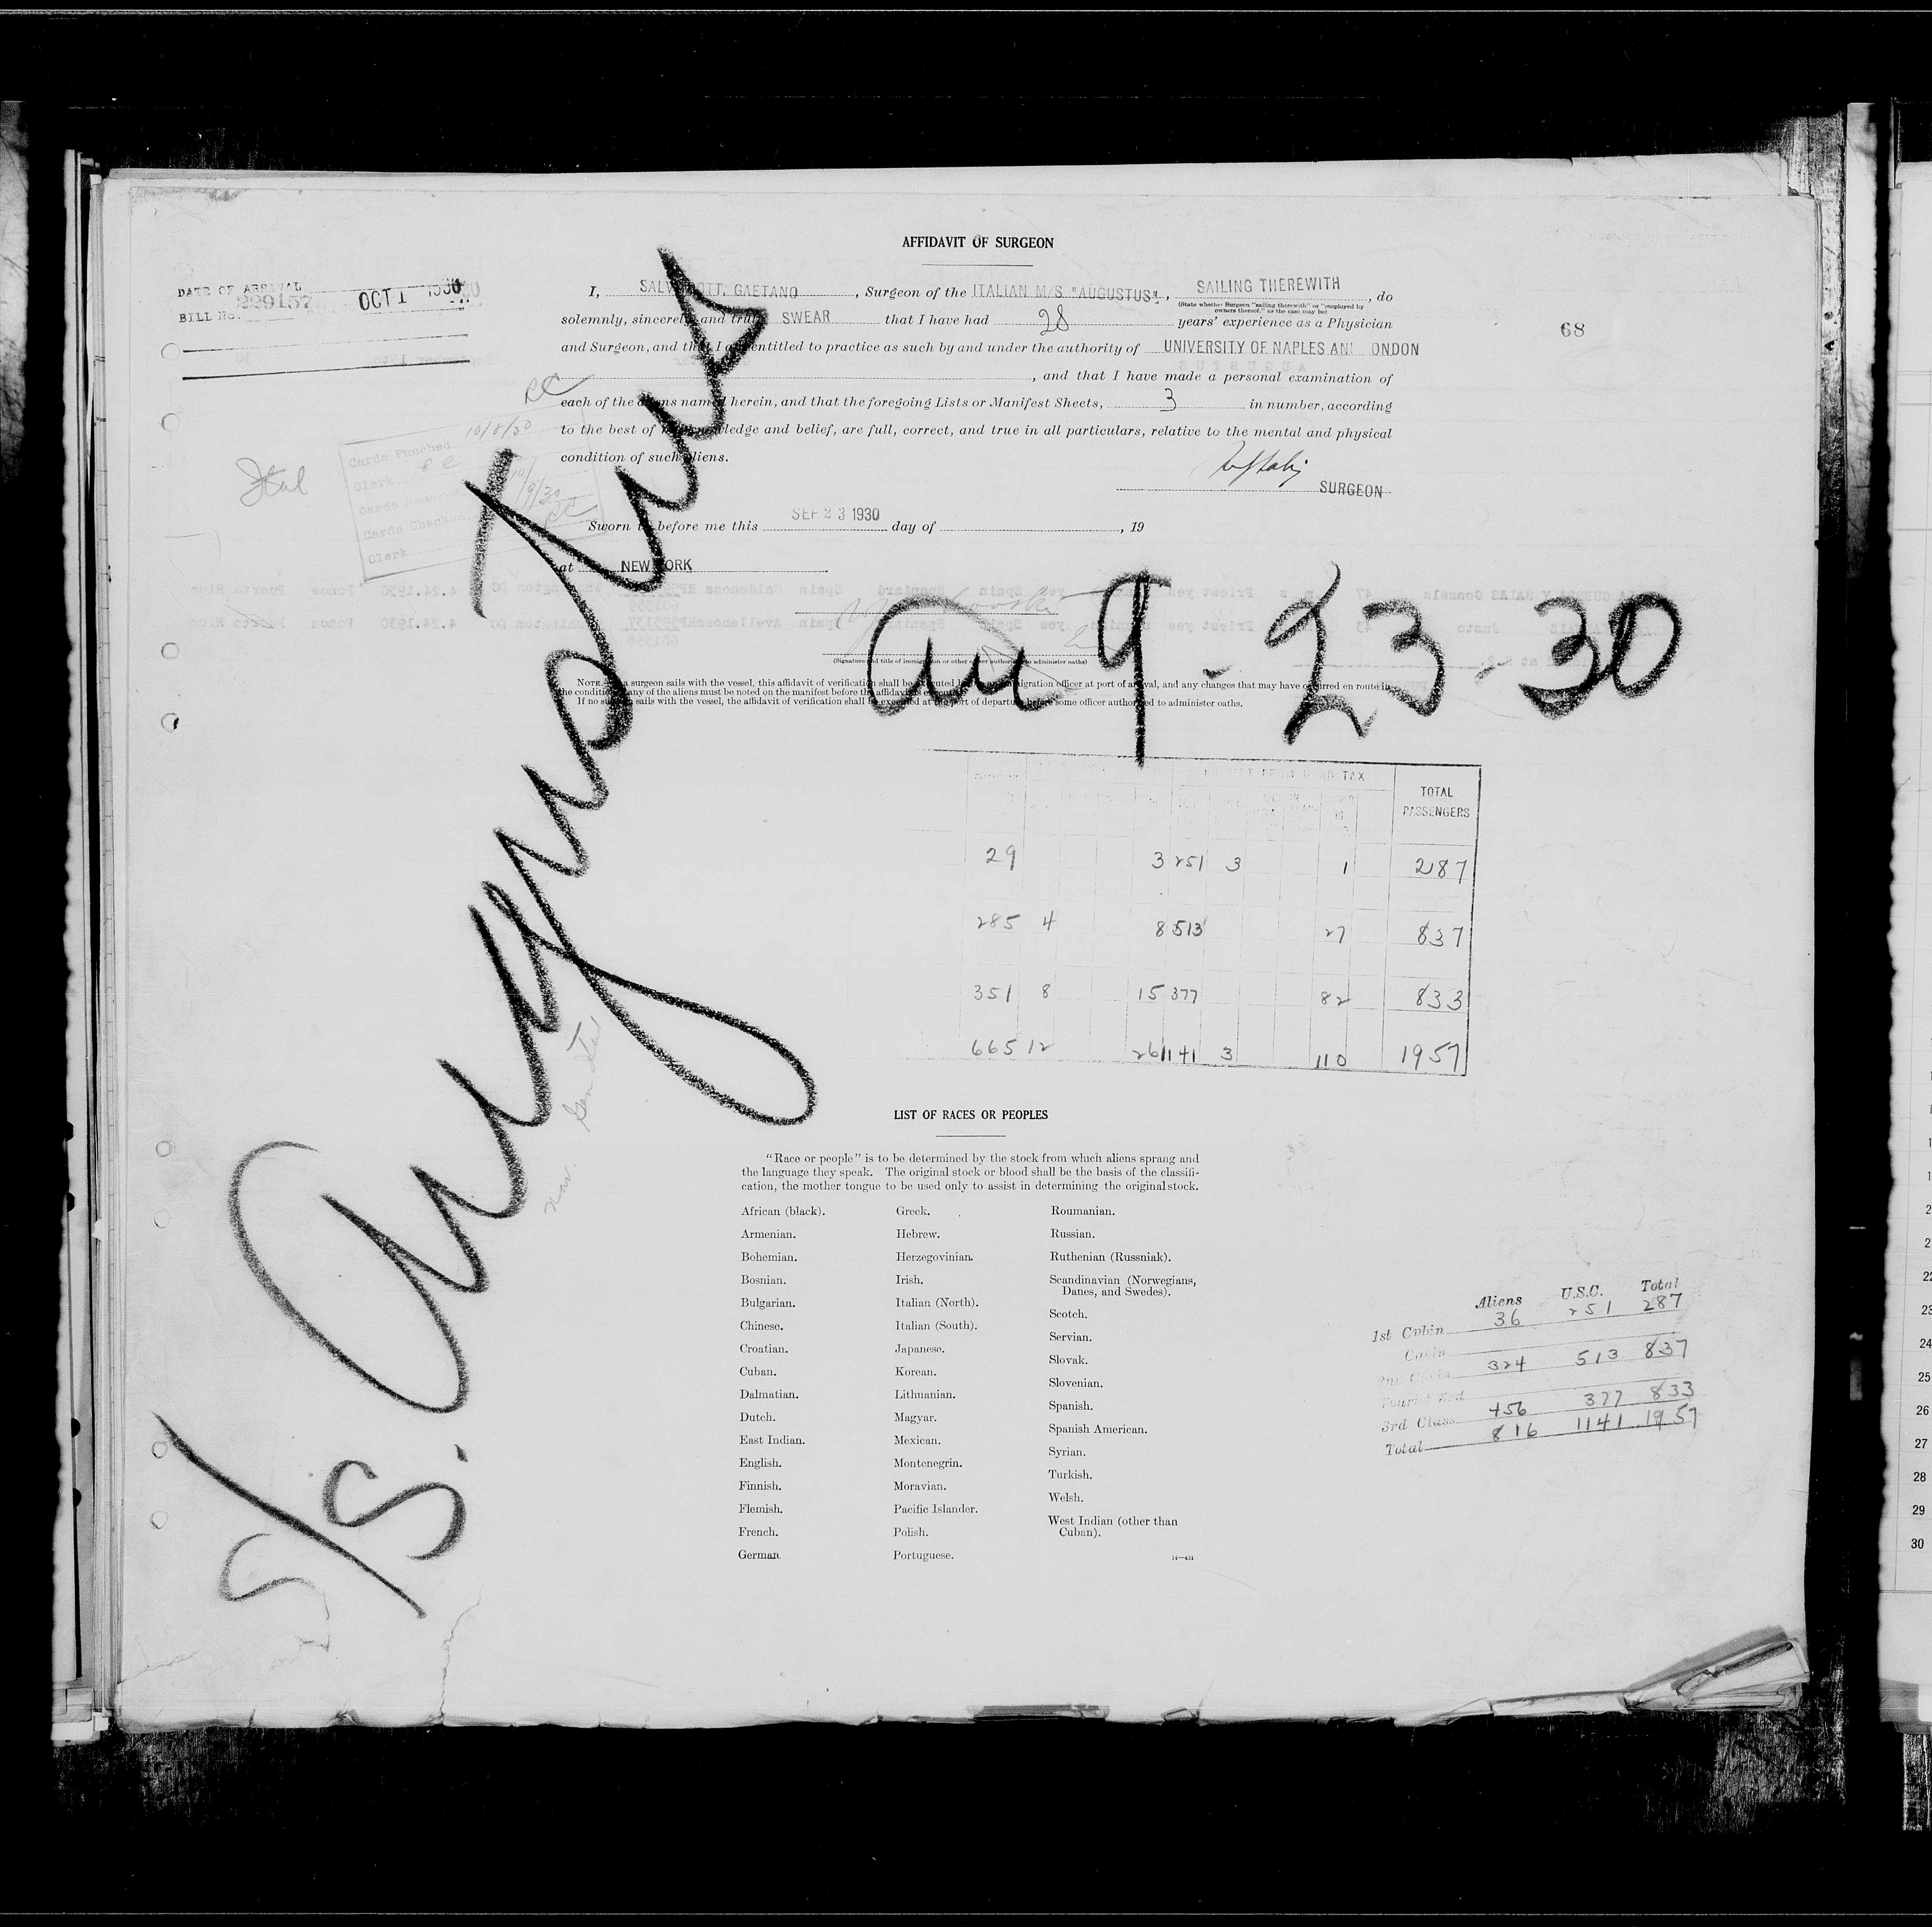 AFFIDAVIT OF SURGEON
DATE OF ARRIVAL OCT 1 1930
BILL No. 229157
68
I, GAETANO, Surgeon of the ITALIAN M/S "AUGUSTUS", SAILING THEREWITH, do
(State whether Surgeon "sailing therewith" or "employed by
owners thereof," as the case may be)
solemnly, sincerely and truly SWEAR that I have had 28 years' experience as a Physician
and Surgeon, and that I am entitled to practice as such by and under the authority of UNIVERSITY OF NAPLES ONDON
, and that I have made a personal examination of
each of the aliens named herein, and that the foregoing Lists or Manifest Sheets, 3 in number, according
to the best of my knowledge and belief, are full, correct, and true in all particulars, relative to the mental and physical
condition of such aliens.
SURGEON
Ital
Cards Punched 10/8/30
Clerk
Cards Checked
Clerk
Sworn to before me this SEP 23 1930 day of , 19
at NEW YORK
(Signature and title of immigration or other officer authorized to administer oaths)
NOTE.—If a surgeon sails with the vessel, this affidavit of verification shall be executed before an immigration officer at port of arrival, and any changes that may have occurred en route in
the condition of any of the aliens must be noted on the manifest before the affidavit is executed.
If no surgeon sails with the vessel, the affidavit of verification shall be executed at the port of departure before some officer authorized to administer oaths.
S/S. Augustus
9-23-30
HEAD TAX
TOTAL
PASSENGERS
29 3 251 3 1 287
285 4 8 513 27 837
351 8 15 377 82 833
665 12 26 1141 3 110 1957
LIST OF RACES OR PEOPLES
"Race or people" is to be determined by the stock from which aliens sprang and
the language they speak. The original stock or blood shall be the basis of the classifi-
cation, the mother tongue to be used only to assist in determining the original stock.
African (black).
Armenian.
Bohemian.
Bosnian.
Bulgarian.
Chinese.
Croatian.
Cuban.
Dalmatian.
Dutch.
East Indian.
English.
Finnish.
Flemish.
French.
German
Greek.
Hebrew.
Herzegovinian.
Irish.
Italian (North).
Italian (South).
Japanese.
Korean.
Lithuanian.
Magyar.
Mexican.
Montenegrin.
Moravian.
Pacific Islander.
Polish.
Portuguese.
Roumanian.
Russian.
Ruthenian (Russniak).
Scandinavian (Norwegians,
Danes, and Swedes).
Scotch.
Servian.
Slovak.
Slovenian.
Spanish.
Spanish American.
Syrian.
Turkish.
Welsh.
West Indian (other than
Cuban).
14—431
Aliens U.S.C. Total
1st Cabin 36 251 287
Cabin
2nd Cabin 324 513 837
Tourist 3rd
3rd Class 456 377 833
Total 816 1141 1957
24
25
26
27
28
29
30